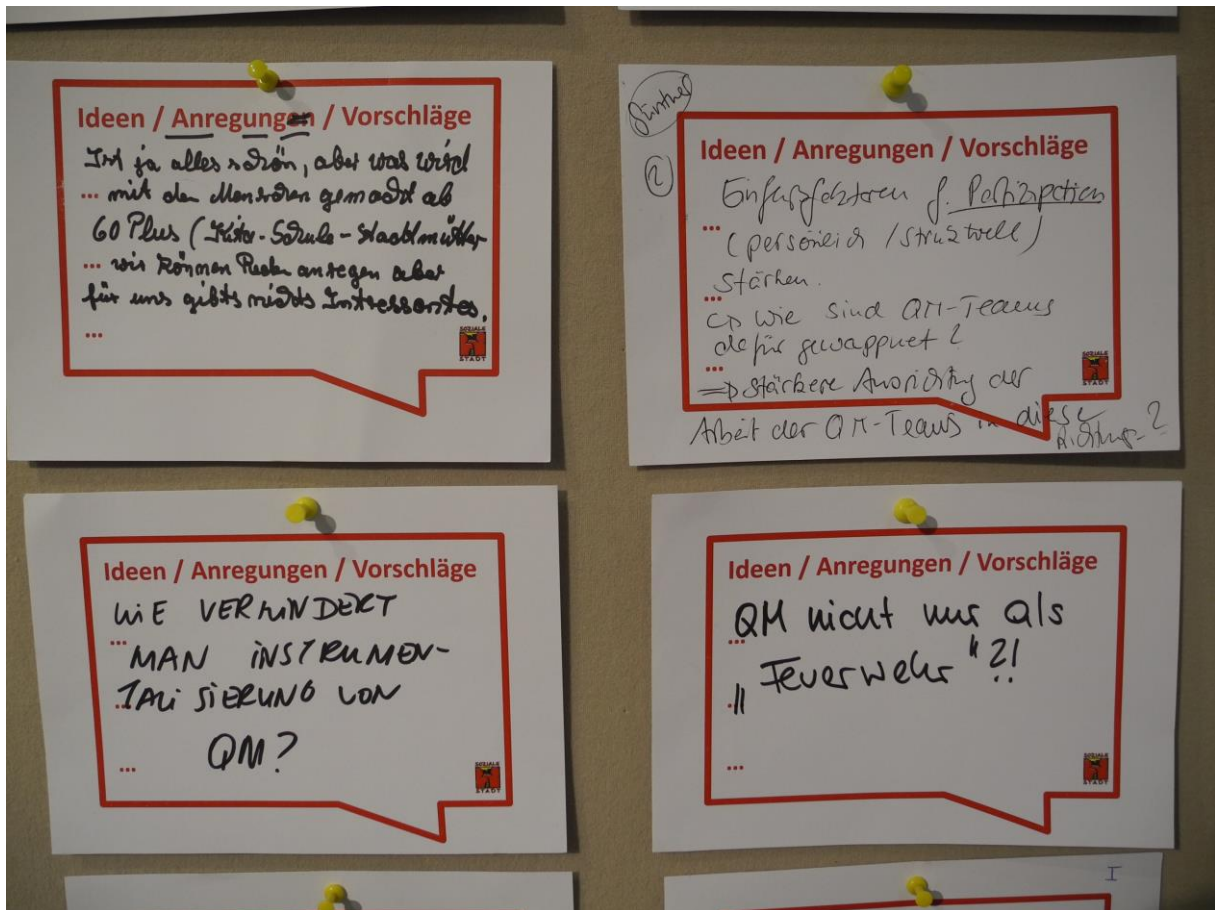 Ideen / Anregungen / Vorschläge
Ist ja alles schön, aber was wird
... mit den Menschen gemacht ab
60 Plus (Kita-Schule-Stadtmütter
... wir können anregen aber
für uns gibts nichts Intressantes.
...
SOZIALE
STADT
②
Ideen / Anregungen / Vorschläge
f. Partizipation
... (persönlich / strukturell)
stärken.
...
wie sind QM-Teams
dafür gewappnet?
...
=> stärkere Ausrichtung der
Arbeit der QM-Teams in diese
Richtung?
SOZIALE
STADT
Ideen / Anregungen / Vorschläge
WIE VERHINDERT
...
MAN INSTRUMEN-
TALISIERUNG VON
...
QM?
...
SOZIALE
STADT
Ideen / Anregungen / Vorschläge
QM nicht nur als
...
„Feuerwehr"?!
...
...
SOZIALE
STADT
I